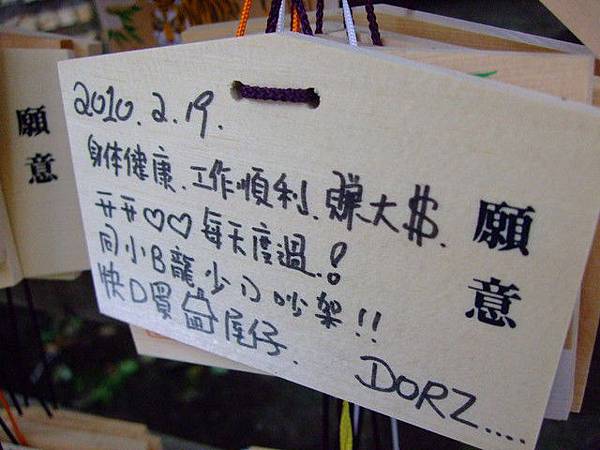 2010.2.19.
身体健康、工作順利、賺大$.
开开♡♡每天度過!
同小B龍少D吵架!!
快D買屋仔.
DORZ....
願意
願意